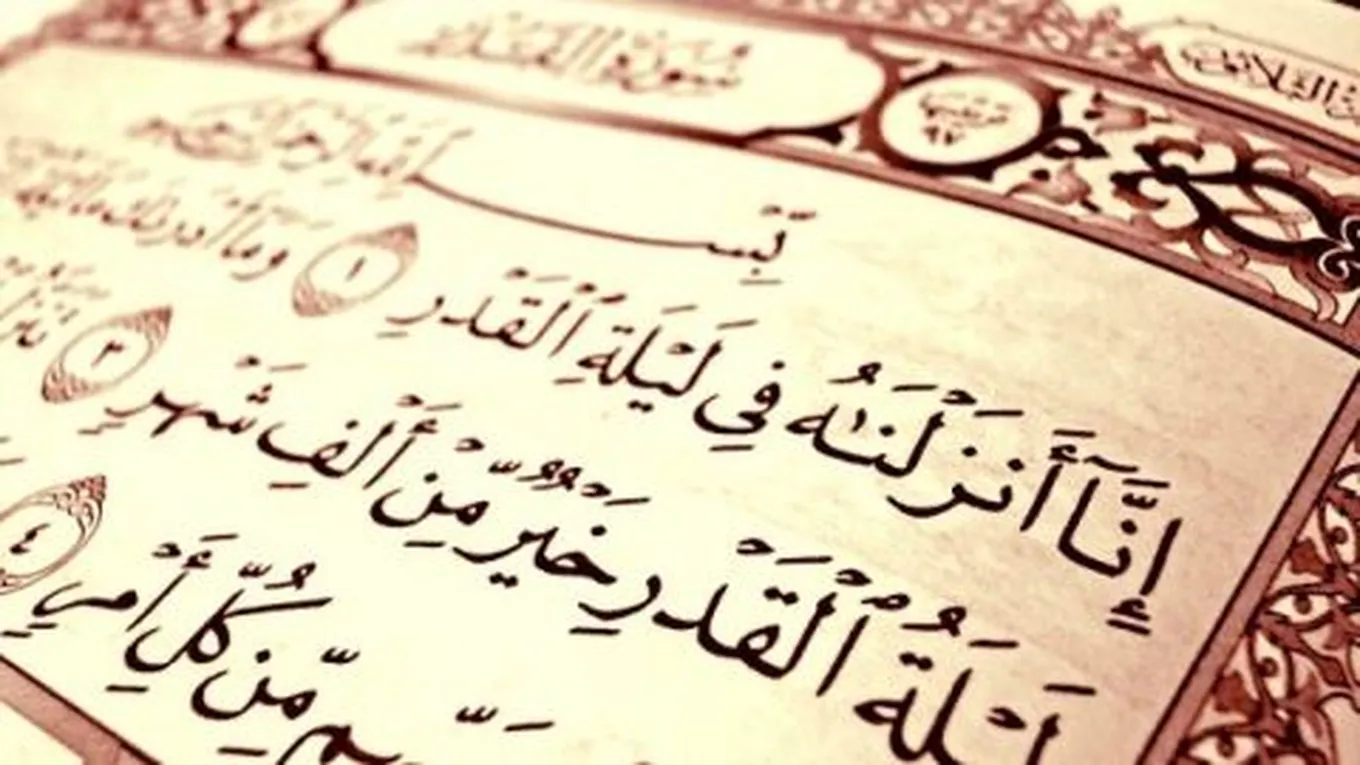 سورة القدر
ترتيبها ٩٧
بِّسْمِ ٱللَّهِ ٱلرَّحْمَٰنِ ٱلرَّحِيمِ
إِنَّآ أَنزَلْنَٰهُ فِى لَيْلَةِ ٱلْقَدْرِ ١ وَمَآ أَدْرَىٰكَ مَا لَيْلَةُ
لَيْلَةُ ٱلْقَدْرِ خَيْرٌ مِّنْ أَلْفِ شَهْرٍ ٣
مِّن كُلِّ أَمْرٍ ٤